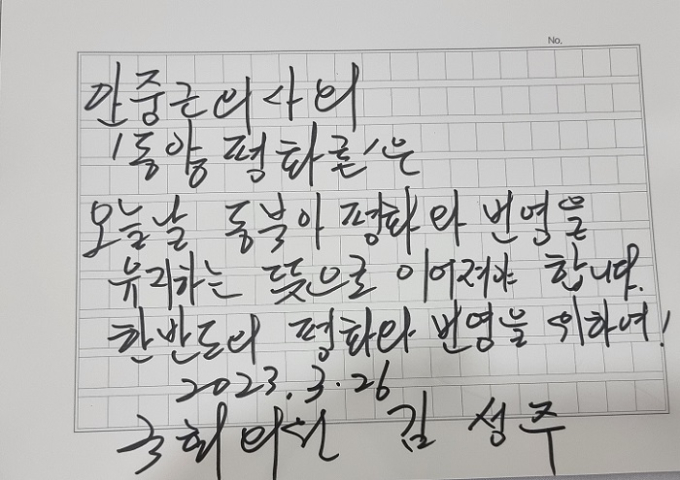 No.
안중근의사의
'동양평화론'은
오늘날 동북아 평화와 번영을
유지하는 뜻으로 이어져야 합니다.
한반도의 평화와 번영을 위하여!
2023. 3. 26
국회의원 김성주